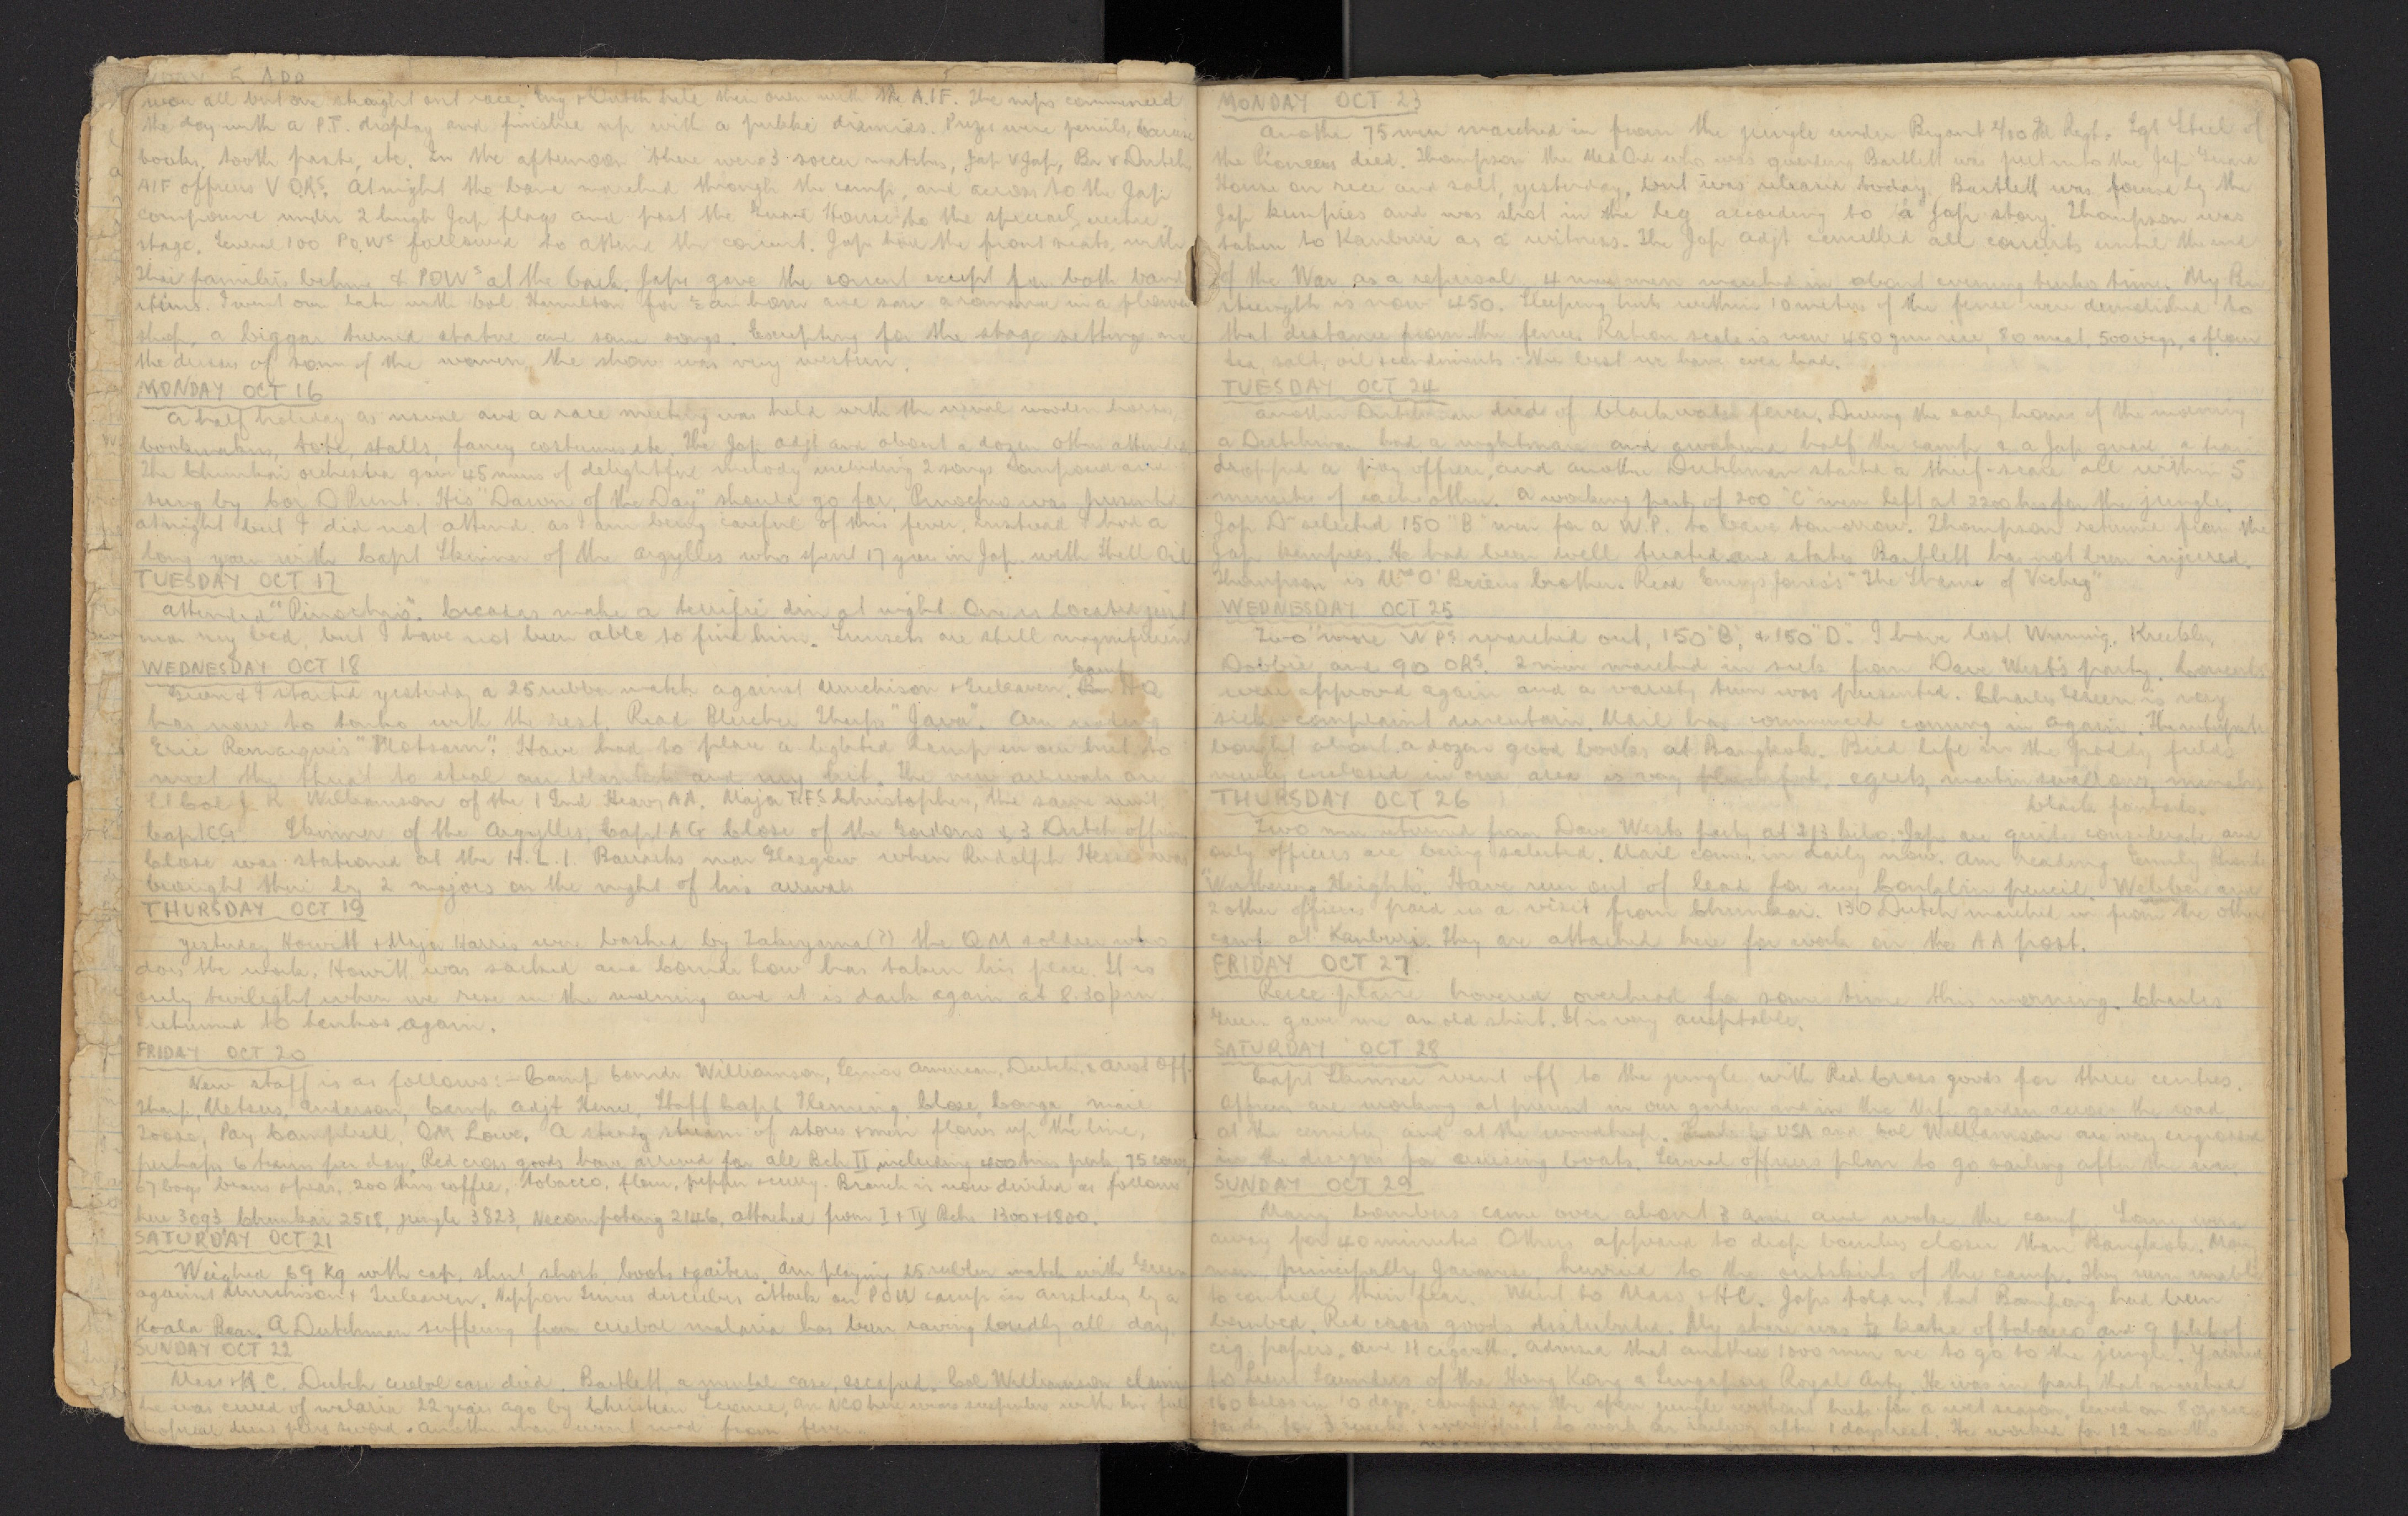 won all but one straight out race. Eng & Dutch held their own with the A.I.F. The nips commenced
the day with a P.T. display and finished up with a public dismiss. Prizes were pencils,
books, tooth paste, etc. In the afternoon there were 3 soccer matches, Jap v Jap, Br v Dutch
AIF officers V ORs. At night the band marched through the camp, and across to the Jap
compound under 2 huge Jap flags and past the Guard House to the specially erected
stage. Several 100 POWs followed to attend the concert. Japs had the front seats, with
their families behind & POWs at the back. Japs gave the concert except for both band
items. I went over late with Col. Hamilton for ½ an hour and saw a romance in a flower
shop, a beggar turned statue and some songs. Excepting for the stage setting and
the dresses of some of the women, the show was very western.
MONDAY OCT 16
A half holiday as usual and a race meeting was held with the usual wooden horses,
bookmakers, tote, stalls, fancy costumes etc. The Jap adjt and about a dozen other attended
The Chunkai orchestra gave 45 mins of delightful melody including 2 songs composed and
sung by Cor D Prent. His "Dawn of the Day" should go far. Pinochio was presented
at night but I did not attend as I am being careful of this fever. Instead I had a
long yarn with Capt Skinner of the Argylles who spent 17 years in Jap. with Shell Oil
TUESDAY OCT 17
Attended "Pinochio". Cicadas make a terrific din at night. One is located just
near my bed, but I have not been able to find him. Sunsets are still magnificent
WEDNESDAY OCT 18
Camp
Green & I started yesterday a 25 rubber match against Murchison & Treleaven. Bn HQ
has now to tenko with the rest. Read Bleecher Sharp's "Java". Am reading
Eric Remarque's "Flotsam". Have had to place a lighted lamp in our hut to
meet the threat to steal our blankets and my kit. The new arrivals are
Lt Col J. R. Williamson of the 1 Ind Heavy AA. Major T.F.S Christopher, the same unit,
Capt CG Skinner of the Argylles, Capt A G Close of the Gordons & 3 Dutch officers
Close was stationed at the H.L.I. Barracks near Glasgow when Rudolph Hess was
brought there by 2 majors on the night of his arrival.
THURSDAY OCT 19
Yesterday Howitt & Major Harris were bashed by Takuyama(?) the QM soldier who
does the work. Howitt was sacked and Lowe has taken his place. It is
only twilight when we rise in the morning and it is dark again at 8.30 pm
I returned to tenkos again.
FRIDAY OCT 20
New staff is as follows:- Camp Comdr Williamson, Senior American, Dutch, & Aust Off.
Tharp, Metsers, Anderson, Camp Adjt Hume, Staff Capts Fleming, Close,
Pay Campbell, QM Lowe. A steady stream of stores & men flows up the line,
perhaps 6 trains per day. Red cross goods have arrived for all Bch II including 400 tins pork, 75
67 bags beans & peas, 200 tins coffee, tobacco, flour, pepper & curry. Branch is now divided as follows
here 3093, Chunkai 2518, jungle 3823, Necompatong 2146, attached from I & IV Bchs 1300 & 1800.
SATURDAY OCT 21
Weighed 69 kg with cap, shirt, shorts, boots & gaiters. Am playing 25 rubber match with Green
against Murchison & Treleaven. Nippon Times describes attack on POW camp in Australia by a
Koala Bear. A Dutchman suffering from cerebal malaria has been raving loudly all day.
SUNDAY OCT 22
Mass & H.C. Dutch cerebal case died. Bartlett, a mental case, escaped. Col Williamson claims
he was cured of malaria 22 years ago by Christian Science. An NCO here
dress plus sword. Another man went mad from fever.
MONDAY OCT 23
Another 75 men marched in from the jungle under Bryant 2/10 Fd Regt. Sgt Steel of
the Pioneers died. Thompson the Med Ord who was guarding Bartlett was put into the Jap Guard
House on rice and salt, yesterday, but was released today. Bartlett was found by the
Jap kempies and was shot in the leg according to a Jap story. Thompson was
taken to Kanburi as a witness. The Jap adjt cancelled all concerts until the end
of the War as a reprisal. 4 more men marched in about evening tenko time. My Bn
strength is now 450. Sleeping huts within 10 metres of the fence were demolished to
that distance from the fence. Ration scale is now 450 gm rice, 80 meat, 500 vegs, & flour
tea, salt, oil & condiments - the best we have ever had.
TUESDAY OCT 24
Another Dutchman died of blackwater fever. During the early hours of the morning
a Dutchman had a nightmare and awakened half the camp & a Jap guard, a
dropped a officer, and another Dutchman started a thief-scare all within 5
minutes of each other. A working party of 200 'C' men left at 2200 hrs for the jungle.
Jap Dr selected 150 "B" men for a W.P. to leave tomorrow. Thompson returned from the
Jap kempies. He had been well treated and states Bartlett has not been injured.
Thompson is Mrs O'Briens brother. Read Emrys Jones's "The Shame of Vichy"
WEDNESDAY OCT 25
Two more W Ps marched out, 150 'B', & 150 "D". I have lost Winning, Kreckler,
Dobbie and 90 ORs. 2 men marched in sick from Dave West's party. Concerts
were approved again and a variety turn was presented. Charles Green is very
sick - complaint uncertain. Mail has commenced coming in again. The interpreter
bought about a dozen good books at Bangkok. Bird life in the paddy fields
newly enclosed in our area is very plentiful, egrets, martin swallows,
black
THURSDAY OCT 26
Two men returned from Dave Wests party at 213 kilo. Japs are quite considerate and
only officers are being saluted. Mail comes in daily now. Am reading Emily Bronte
"Wuthering Heights". Have run out of lead for my pencil. Webber and
2 other officers paid us a visit from Chunkai. 130 Dutch marched in from the other
camp at Kanburi. They are attached here for work on the AA post.
FRIDAY OCT 27
Recce plane hovered overhead for some time this morning. Charles
Green gave me an old shirt. It is very acceptable.
SATURDAY OCT 28
Capt Skinner went off to the jungle with Red Cross goods for three centres.
Officers are working at present in our garden and in the Nip garden across the road,
at the cemetery and at the woodheap. USA and Col Williamson are very engrossed
in the designs for cruising boats. Several officers plan to go sailing after the war.
SUNDAY OCT 29
Many bombers came over about 3 am and woke the camp. Some were
away for 40 minutes. Others appeared to drop bombs closer than Bangkok. Many
men, principally Javanese, hurried to the outskirts of the camp. They were unable
to control their fear. Went to Mass & HC. Japs told us that Bampong had been
bombed. Red cross goods distributed. My share was ¼ katie of tobacco and 9 pkts of
cig papers, and 11 cigarettes. Advised that another 1000 men are to go to the jungle. Yarned
to Lieut Saunders of the Hong Kong & Singapore Royal Arty. He was in party that marched
160 kilos in 10 days, camped in the open jungle without tents for a wet season, lived on
for 3 weeks & were to work on railway after 1 days rest. He worked for 12 months